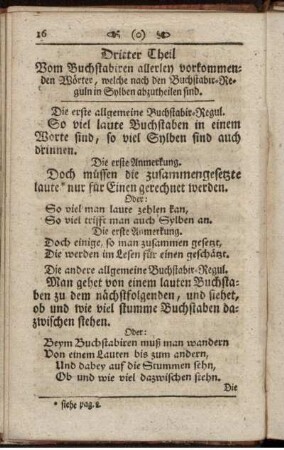 16 (o)
Dritter Theil
Vom Buchstabiren allerley vorkommen-
den Wörter, welche nach den Buchstabir-Re-
guln in Sylben abzutheilen sind.
Die erste allgemeine Buchstabir-Regul.
So viel laute Buchstaben in einem
Worte sind, so viel Sylben sind auch
drinnen.
Die erste Anmerkung.
Doch müssen die zusammengesetzte
laute * nur für Einen gerechnet werden.
Oder:
So viel man laute zehlen kan,
So viel trifft man auch Sylben an.
Die erste Anmerkung.
Doch einige, so man zusammen gesetzt,
Die werden im Lesen für einen geschätzt.
Die andere allgemeine Buchstabir-Regul.
Man gehet von einem lauten Buchsta-
ben zu dem nächstfolgenden, und siehet,
ob und wie viel stumme Buchstaben da-
zwischen stehen.
Oder:
Beym Buchstabiren muß man wandern
Von einem Lauten bis zum andern,
Und dabey auf die Stummen sehn,
Ob und wie viel dazwischen stehn.
Die
* siehe pag. 8.